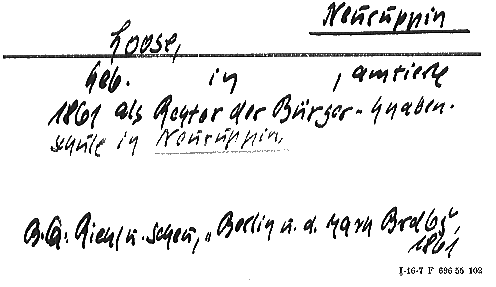 Neuruppin
Loose,
Geb. in , amtierte
1861 als Rektor der Bürger-Knaben-
schule in Neuruppin.
B.Q.: Riehl u. Scheu, „Berlin u. d. Mark Brdbg",
1861
I-16-7 F 696 55 102